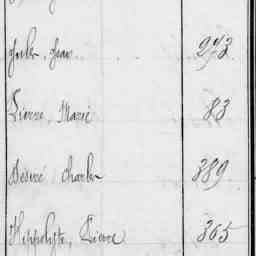 Jules, Jean 273
Pierre, Marie 83
Désiré, Charles 389
Hippolyte, Pierre 365